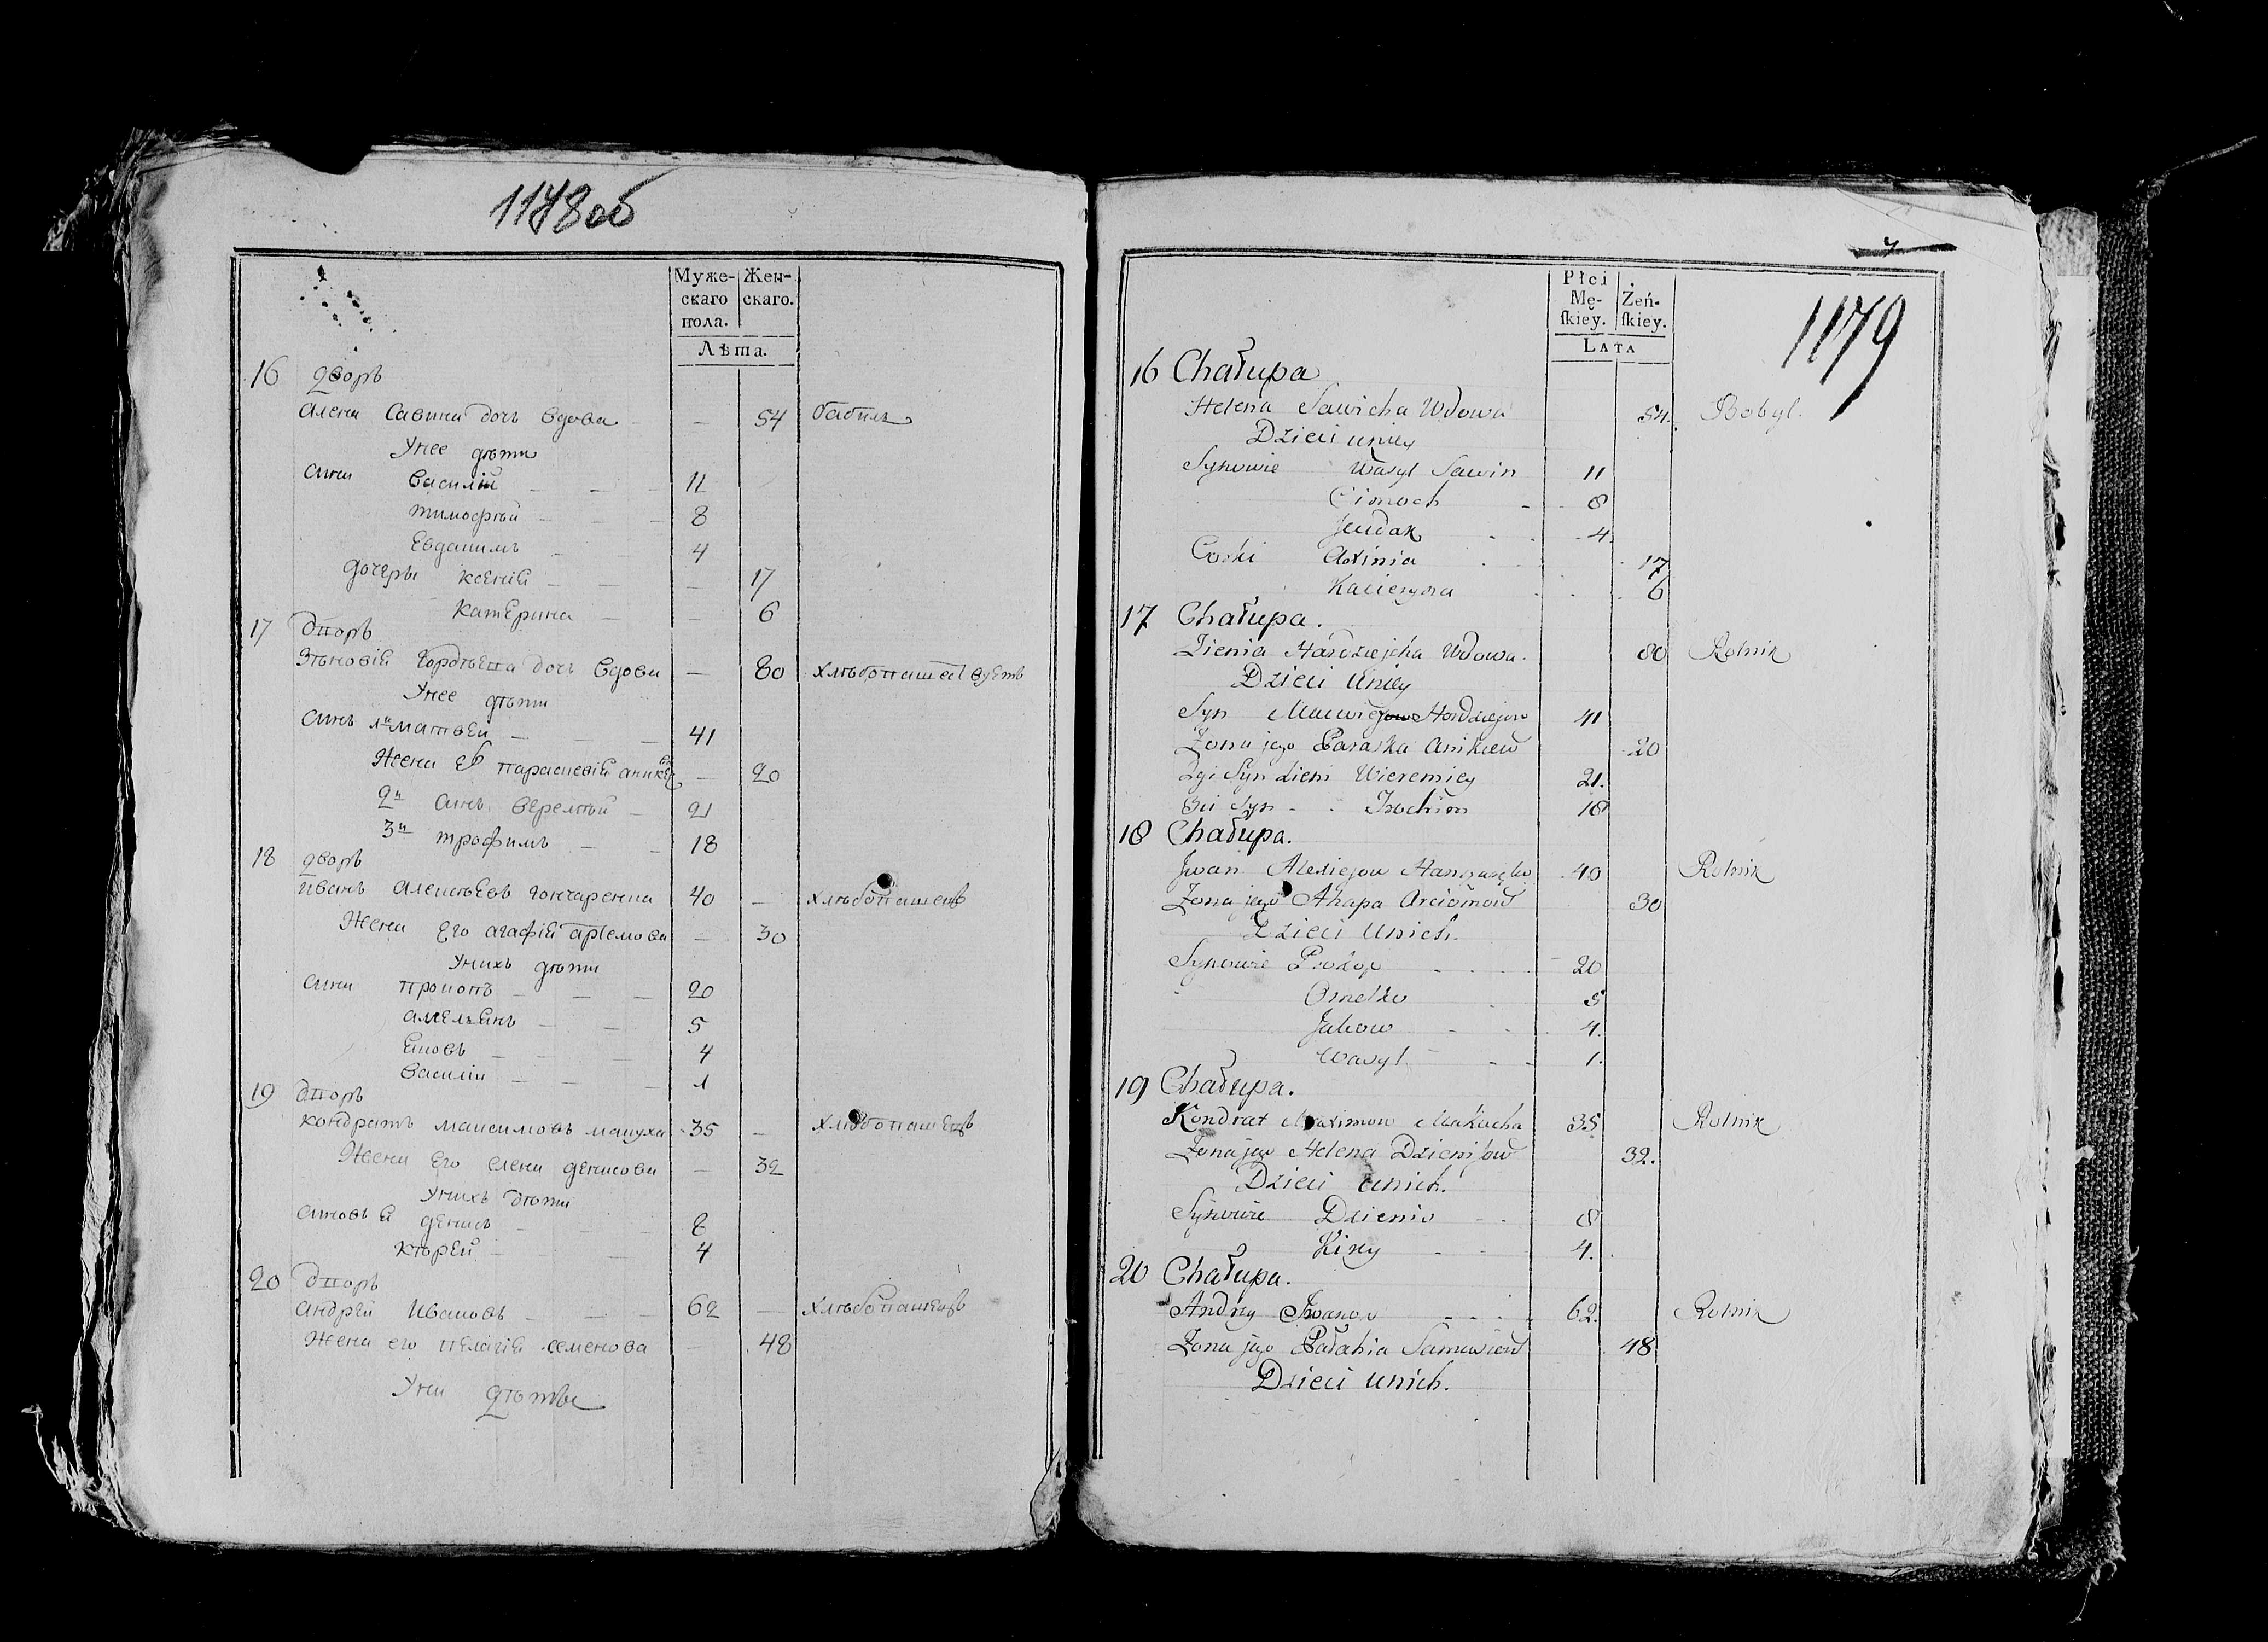 1178об
Муже-
скаго
пола.
Жен-
скаго.
Лѣта.
16 дворъ
Алена Савина дочь вдова - 54 бабиль
Унее дѣти
сини Василій 11
тимофѣй 8
Евдакимъ 4
дочеры ксенія - 17
катерина - 6
17 дворъ
Зѣновія Гордѣева дочь вдова - 80
Унее дѣти
синъ 1й матвей 41
Жена ево параскевія - 20
2й синъ веремѣй 21
3й трофимъ 18
18 дворъ
иванъ алексѣевъ гончаренка 40 - хлѣбопашецъ
Жена его агафія артемова - 30
Унихъ дѣти
сини прокопъ 20
амельянъ 5
яковъ 4
василій 1
19 дворъ
кондратъ максимовъ макуха 35 - хлѣбопашецъ
Жена его елена денисова - 32
Унихъ дѣти
синовья денисъ 8
4
20 дворъ
андрей ивановъ 62 - хлѣбопашецъ
Жена его пелагія семенова - 48
Уни дѣтье
1179
Płci
Mę-
ſkiey.
Żeń-
ſkiey.
LATA
16 Chałupa
Helena Sawicha Wdowa 54. Bobyl.
Dzieci uniey
Synowie Wasyl Sawin 11
Cimoch 8
Jeudak 4.
Corki Axinia 17
Kacieryna 6
17 Chałupa.
Zienia Hardziejcha Wdowa. 80 Rolnik
Dzieci Uniey
Syn Maciey Hordziejow 41
Zona jego Paraska Anikiew 20
2gi Syn Zieni Wieremiey 21.
3ci Syn 18
18 Chałupa.
Jwan Alexiejow Hanczarenko 40 Rolnik
Zona jego Ahapa Arciomow 30
Dzieci Unich.
Synowie Prokop 20
Omelko 5
Jakow 4.
Wasyl 1.
19 Chałupa.
Kondrat Maximow Makucha 35 Rolnik
Zona jego Helena Dzienisow 32.
Dzieci Unich.
Synowie Dzienis 8
4.
20 Chałupa.
Andrey Jwanow 62. Rolnik
Zona jego Pałahia Samusiew 48
Dzieci Unich.